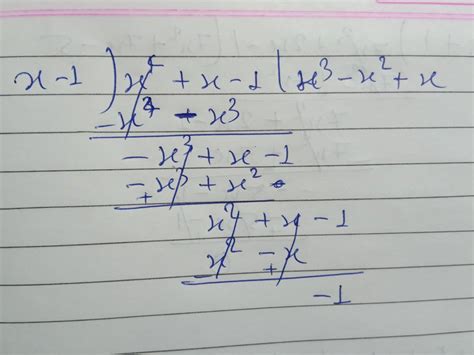 x - 1 ) x⁴ + x - 1 ( x³ - x² + x
- x⁴ + x³
- x³ + x - 1
- x³ + x²
+
x² + x - 1
x² - x
- +
-1